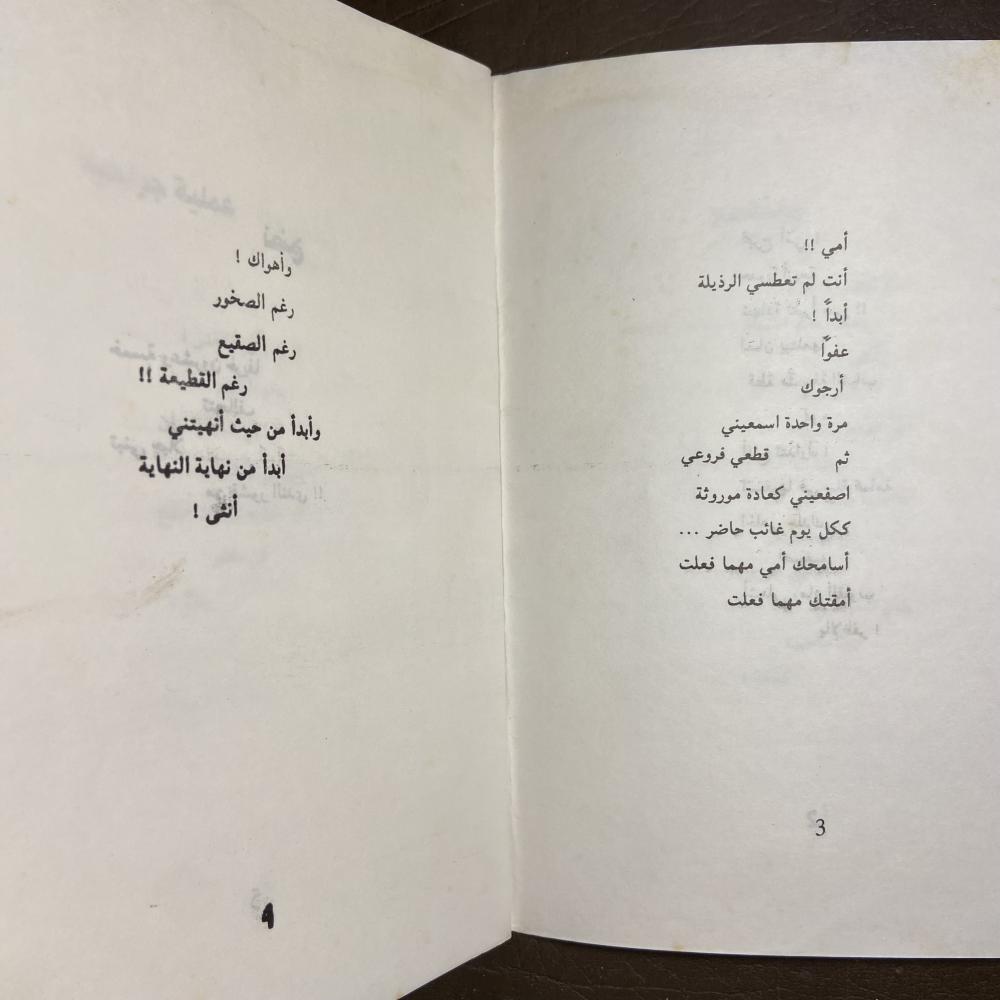 أمي !!
أنت لم تعطسي الرذيلة
أبداً !
عفواً
أرجوك
مرة واحدة اسمعيني
ثم قطعي فروعي
اصفعيني كعادة موروثة
ككل يوم غائب حاضر ...
أسامحك أمي مهما فعلت
أمقتك مهما فعلت
3
وأهواك !
رغم الصخور
رغم الصقيع
رغم القطيعة !!
وأبدأ من حيث أنهيتني
أبدأ من نهاية النهاية
أنثى !